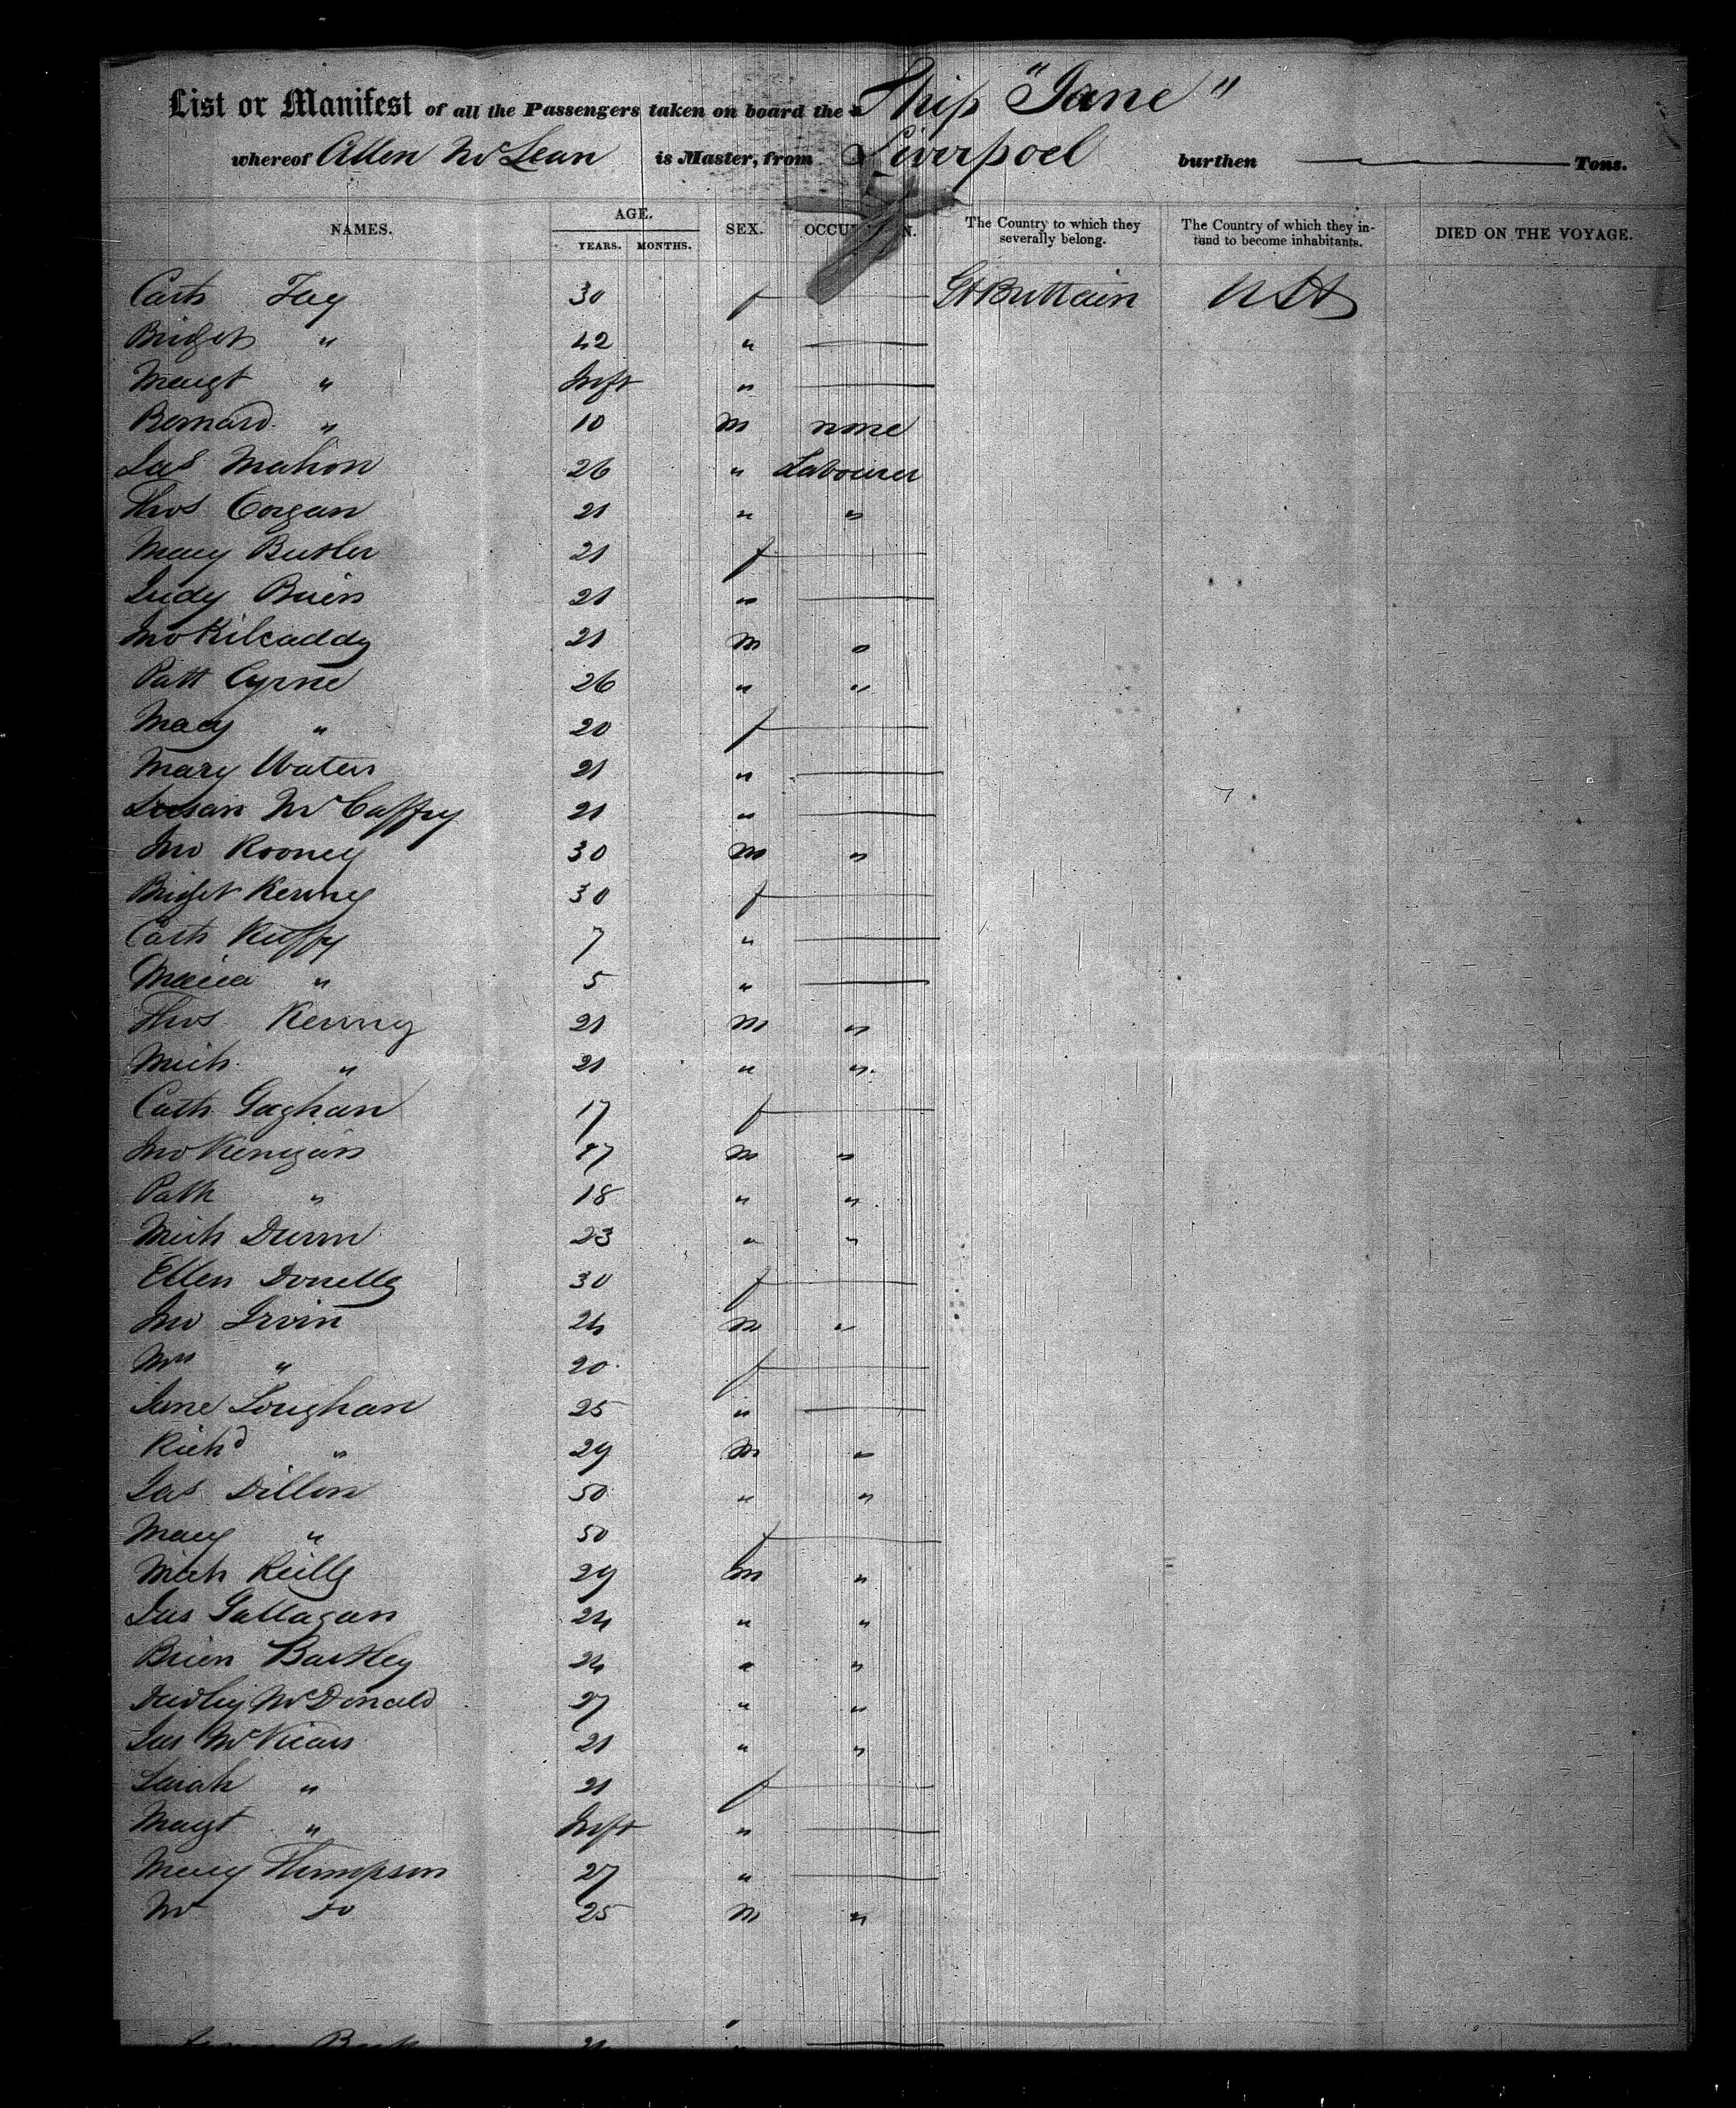 List or Manifest of all the Passengers taken on board the Ship "Jane"
whereof Allen McLean is Master, from Liverpool burthen Tons.
NAMES. AGE. YEARS. MONTHS. SEX. OCCU N. The Country to which they severally belong. The Country of which they intend to become inhabitants. DIED ON THE VOYAGE.
Cath Fay 30 f Gt Brittain USA
Bridget " 42 "
Margt " Inft "
Bernard " 10 m none
Jas Mahon 26 " Labourer
Thos Corgan 21 " "
Mary Butler 21 f
Judy Brien 21 "
Jno Kilcaddy 21 m "
Patt Cyrne 26 " "
Mary " 20 f
Mary Waters 21 "
Susan McCaffry 21 "
Jno Rooney 30 m "
Bridget Kenny 30 f
Cath Kuffy 7 "
Maria " 5 "
Thos Kenny 21 m "
Mich " 21 " "
Cath Gaghan 17 f
Jno Kenigan 17 m "
Patk " 18 " "
Mich Dunn 23 " "
Ellen Donelly 30 f
Jno Irvin 24 m "
Mrs " 20 f
Jane Loughan 25 "
Richd " 29 m "
Jas Dillon 50 " "
Mary " 50 f
Mich Reilly 29 m "
Jas Gallagan 24 " "
Brien Bartley 24 " "
Dudley McDonald 27 " "
Jas McVicars 21 " "
Sarah " 21 f
Margt " Inft "
Mary Thompson 27 "
Mr Do 25 m "